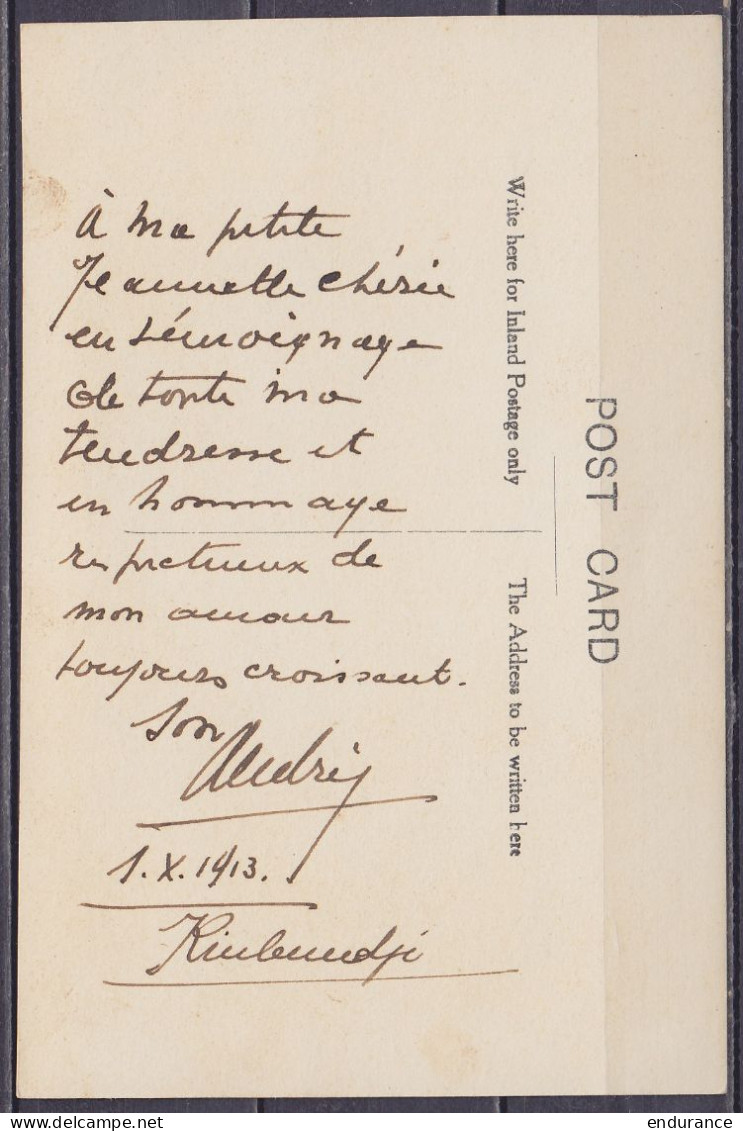 À ma petite
Jeannette chérie
en témoignage
de toute ma
tendresse et
en hommage
respectueux de
mon amour
toujours croissant.
Son
André
1.X.1913.
Kinbundji
Write here for Inland Postage only
The Address to be written here
POST CARD
endurance